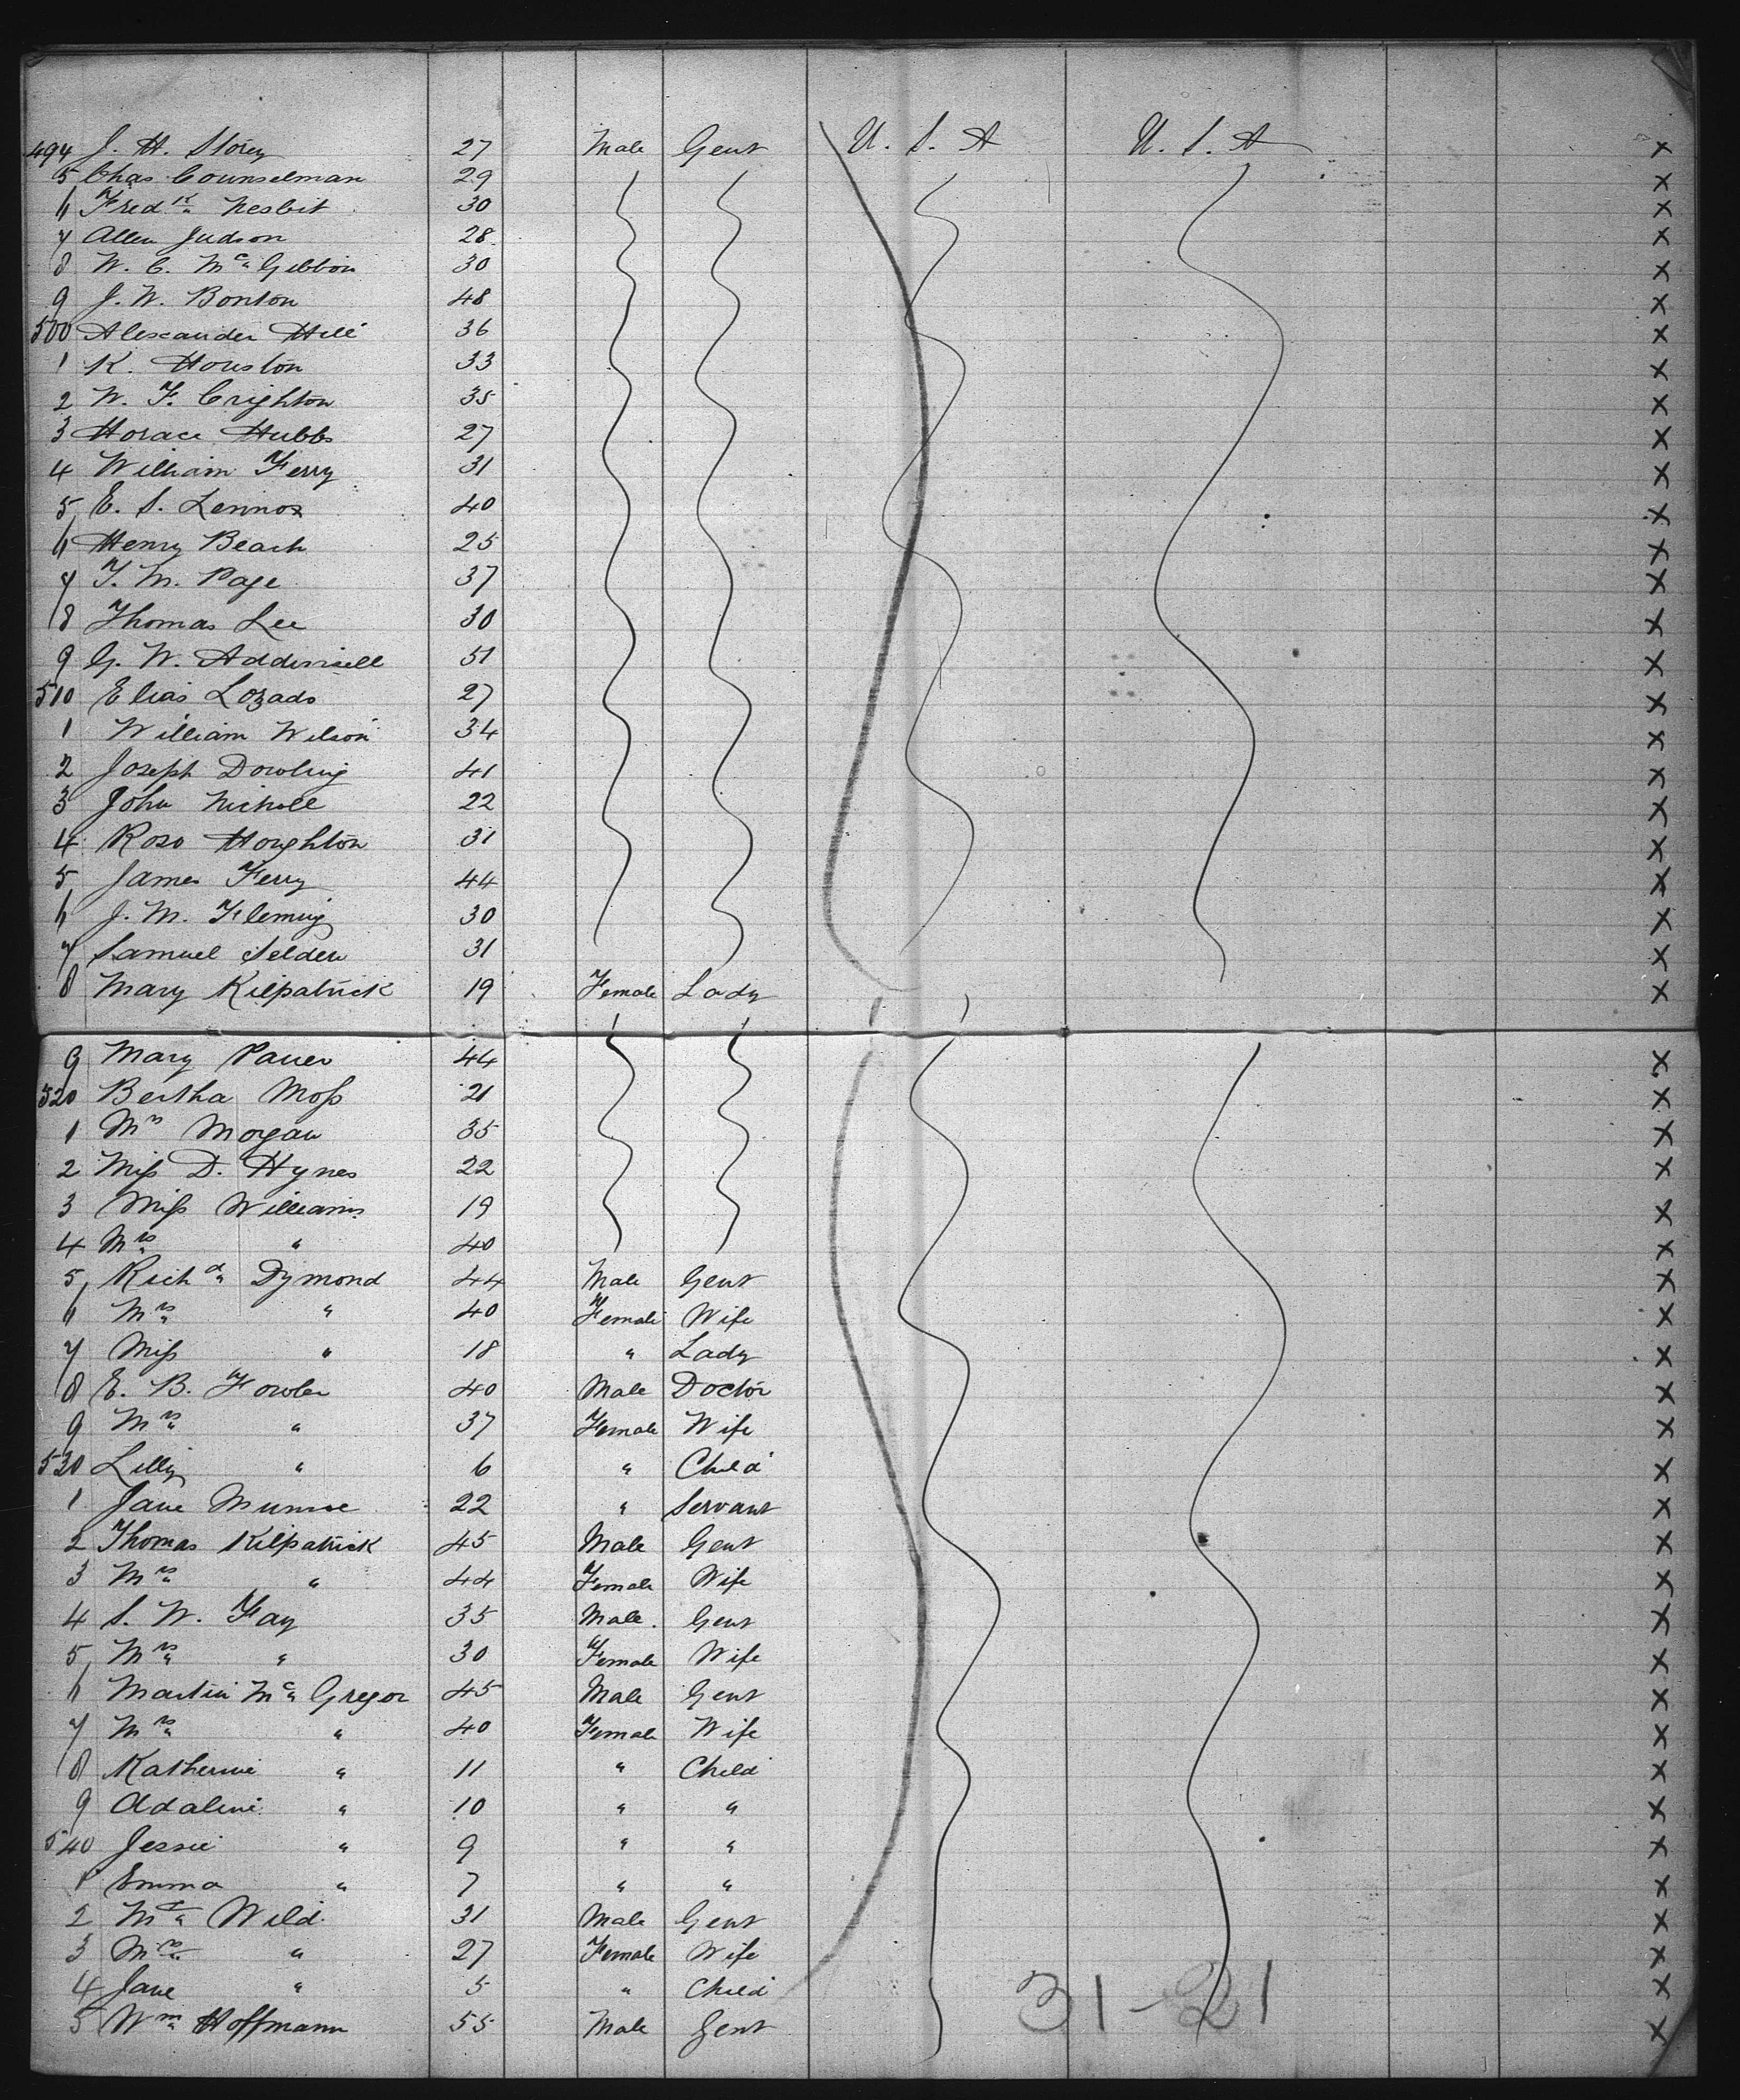 494 J. H. Storey 27 Male Gent U. S. A U. S. A x
5 Chas Counselman 29 x
6 Fredk Nesbit 30 x
7 Allen Judson 28 x
8 W. C. Mc Gibbon 30 x
9 J. W. Bonton 48 x
500 Alexander Hill 36 x
1 K. Houston 33 x
2 W. F. Crighton 35 x
3 Horace Hubbs 27 x
4 William Ferry 31 x
5 E. S. Lennox 40 x
6 Henry Beach 25 x
7 T. M. Page 37 x
8 Thomas Lee 30 x
9 G. W. 51 x
510 Elias Lozado 27 x
1 William Wilson 34 x
2 Joseph Dowling 41 x
3 John Nicholl 22 x
4 Roso Houghton 31 x
5 James Ferry 44 x
6 J. M. Fleming 30 x
7 Samuel Selden 31 x
8 Mary Kilpatrick 19 Female Lady x
9 Mary 44 x
520 Bertha Moss 21 x
1 Mrs Morgan 35 x
2 Miss D. Hynes 22 x
3 Miss Williams 19 x
4 Mrs " 40 x
5 Richd Dymond 44 Male Gent x
6 Mrs " 40 Female Wife x
7 Miss " 18 " Lady x
8 E. B. Fowler 40 Male Doctor x
9 Mrs " 37 Female Wife x
530 Lilly " 6 " Child x
1 Jane Munroe 22 " Servant x
2 Thomas Kilpatrick 45 Male Gent x
3 Mrs " 44 Female Wife x
4 S. W. Fay 35 Male Gent x
5 Mrs " 30 Female Wife x
6 Martin Mc Gregor 45 Male Gent x
7 Mrs " 40 Female Wife x
8 Katherine " 11 " Child x
9 Adaline " 10 " " x
540 Jessie " 9 " " x
1 Emma " 7 " " x
2 Mr Wild 31 Male Gent x
3 Mrs " 27 Female Wife x
4 Jane " 5 " Child x
31-21
5 Wm Hoffmann 55 Male Gent x